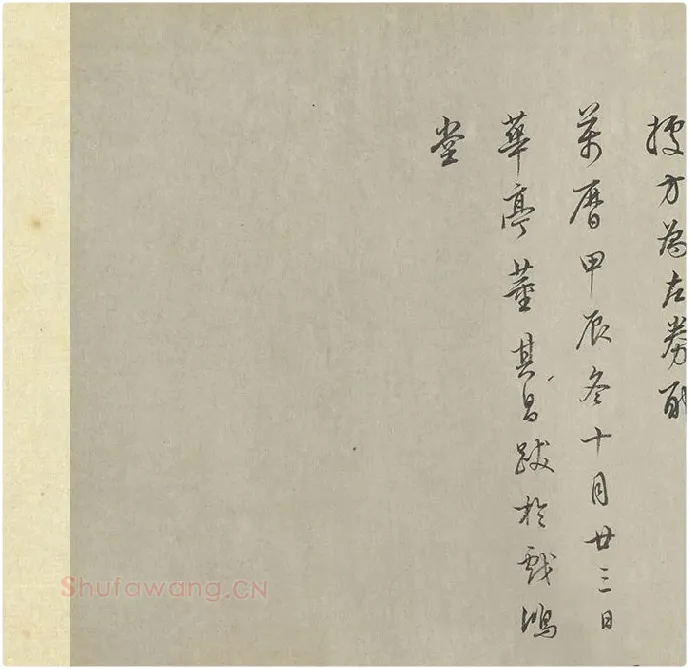 據方為左券
萬曆甲辰冬十月廿三日
華亭董其昌跋於戲鴻
堂
Shufawang.CN